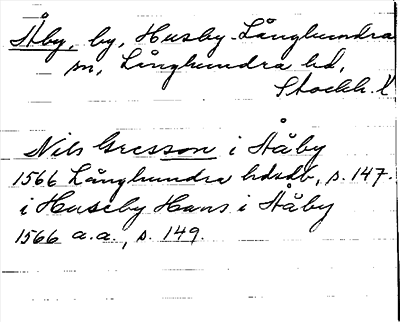 Åby, by, Husby-Långhundra
sn, Långhundra hd,
Stockh. X
Nils Gresson i Ååby
1566 Långhundra hdsdb, s. 147.
i Huseby Hans i Ååby
1566 a.a., s. 149.